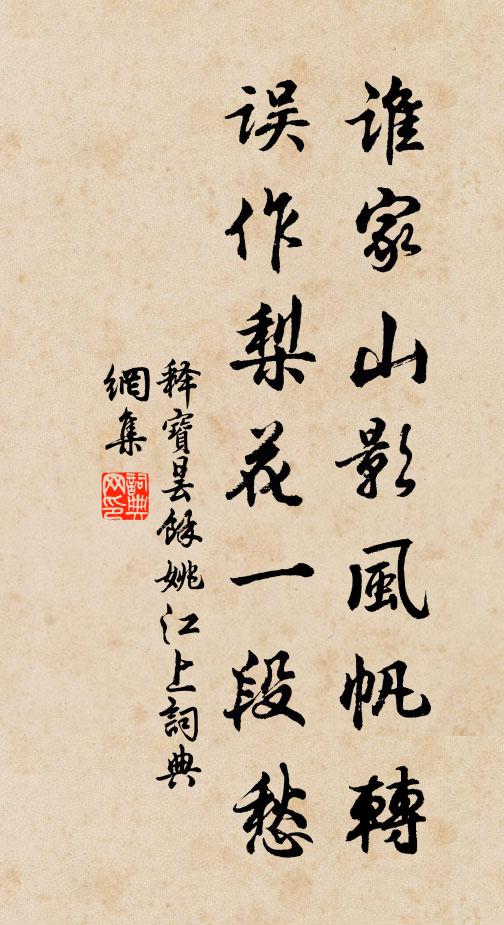 誰家山影風帆轉
误作梨花一段愁
釋寶曇餘姚江上詞典
網集
詞典
网印